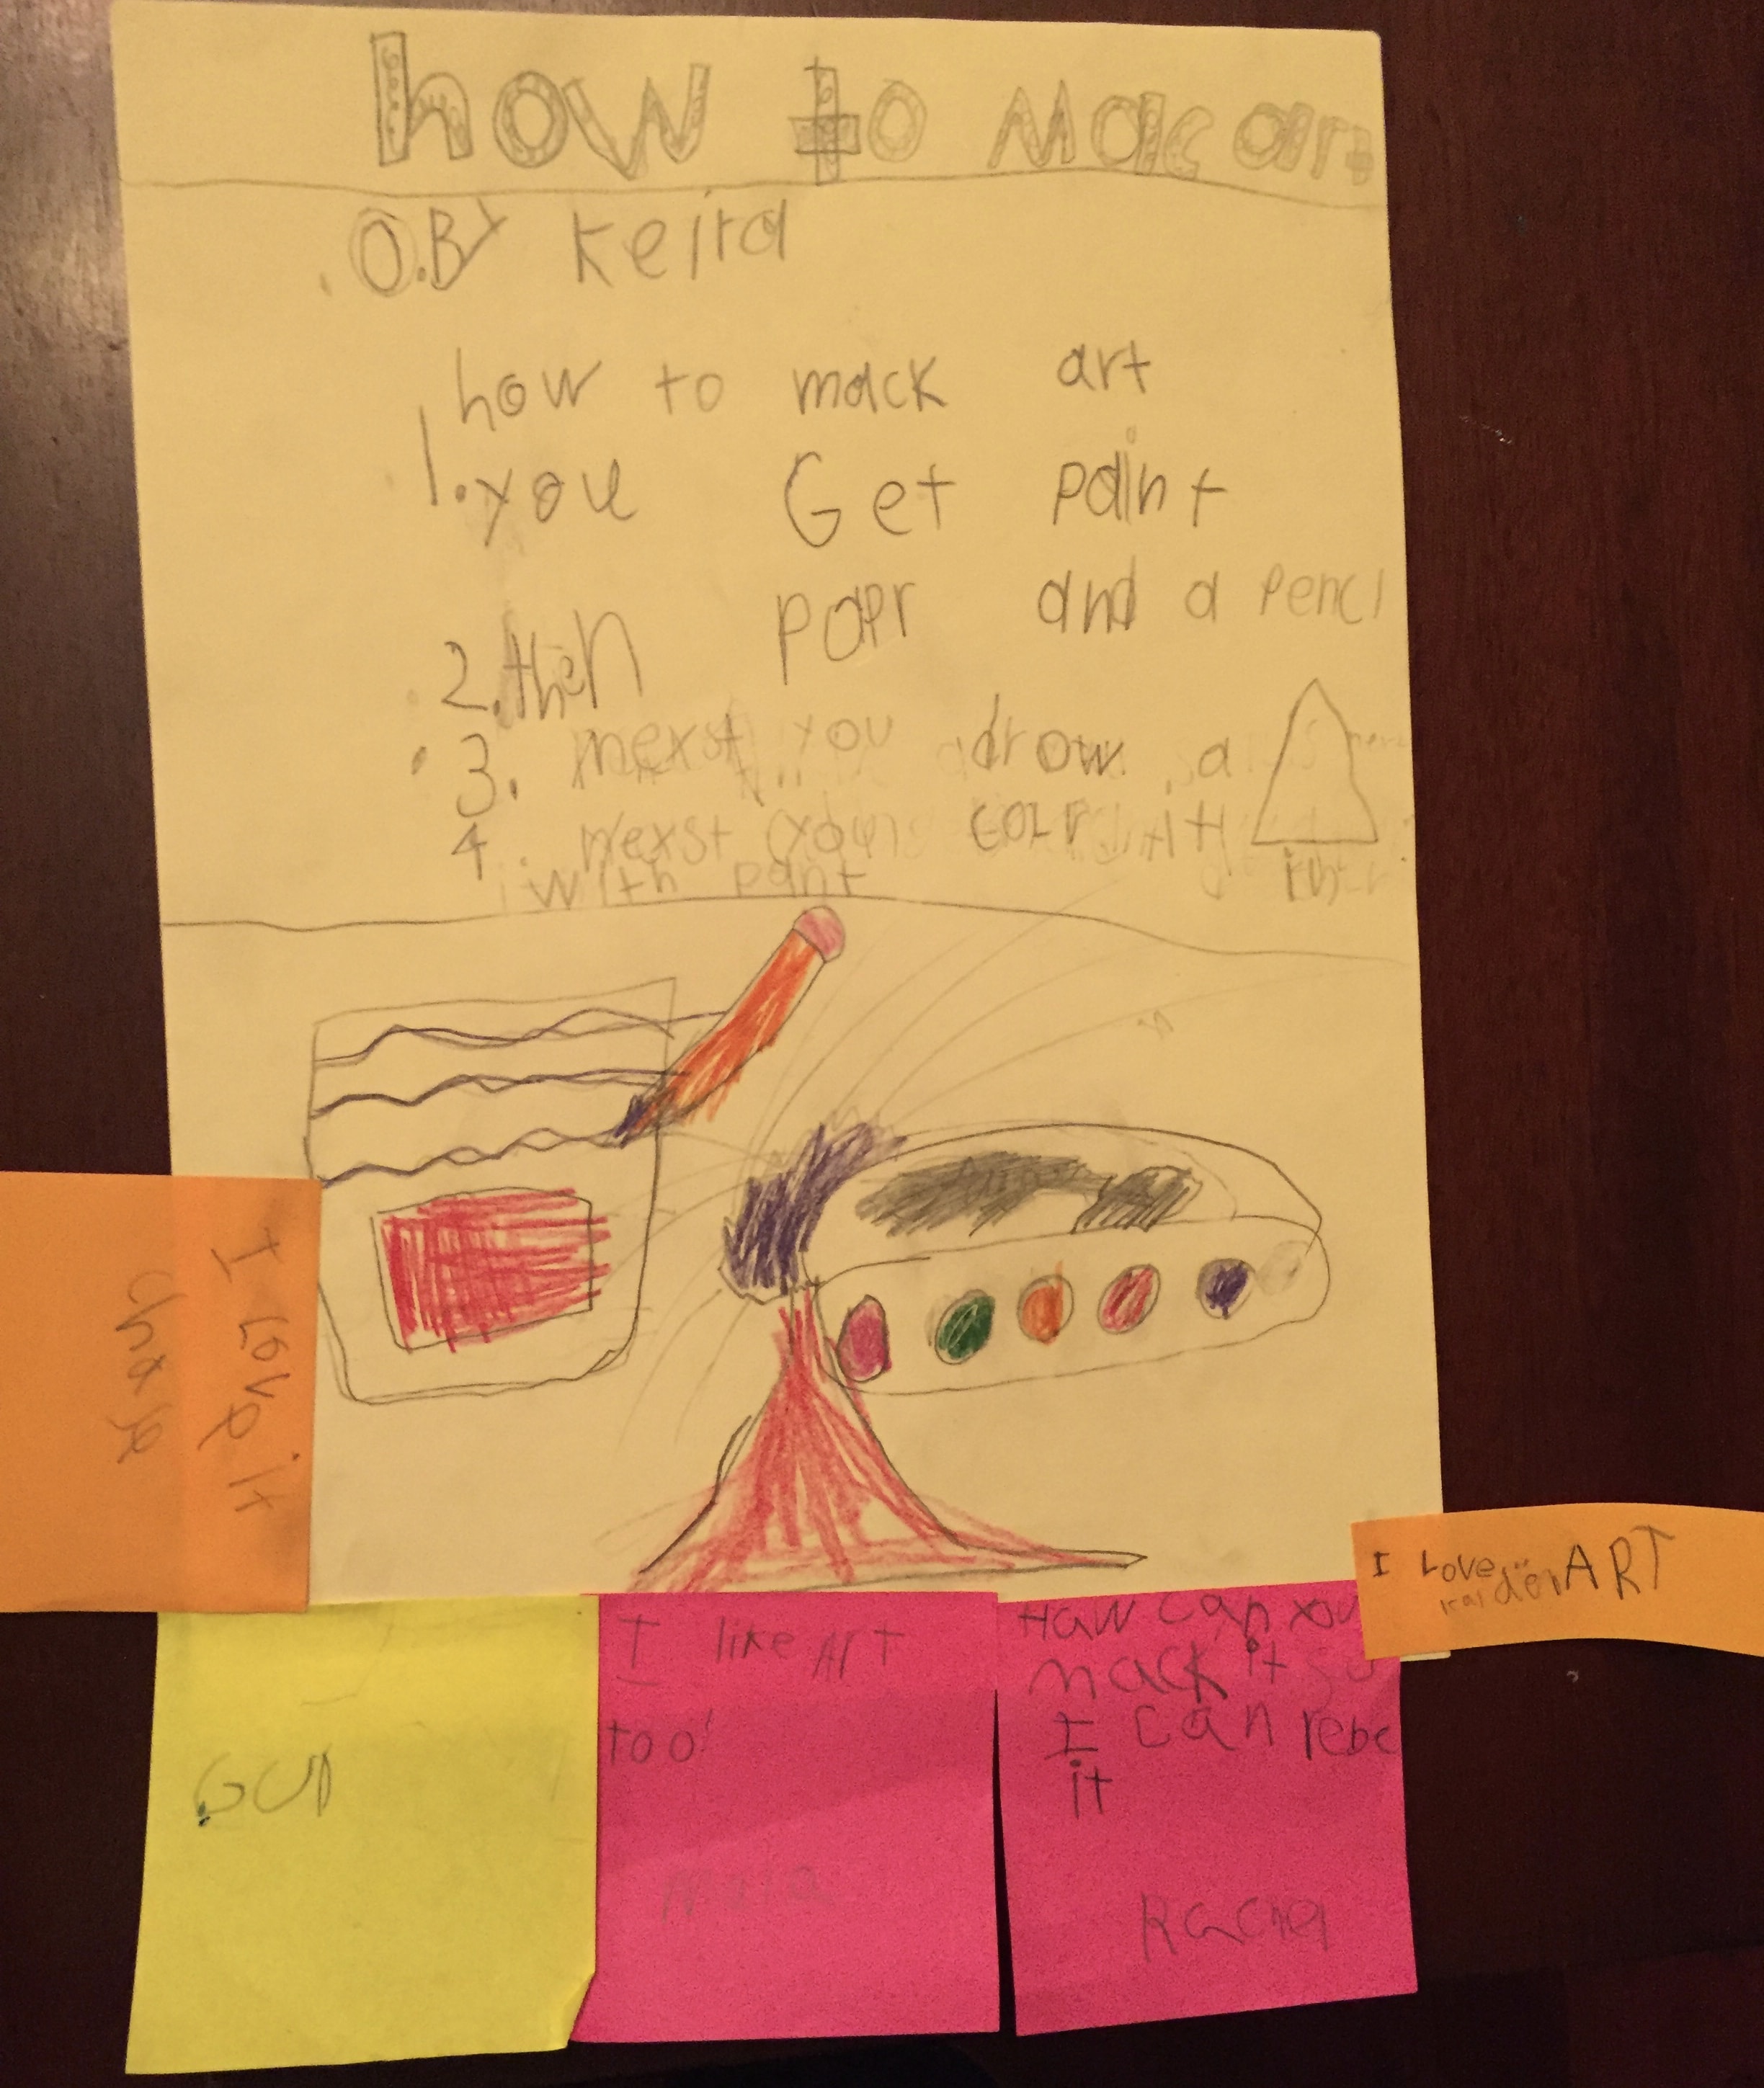 how to Mac art
0.By Keira
how to mack art
1. you Get paint
2. then papr and a pencl
3. nexst you drow a
4. nexst you colr it
with pant
I Love it
Chase
I Love ART
kaiden
I like ArT
too!
How can you
mack it so
I can rebe
it
Rachel